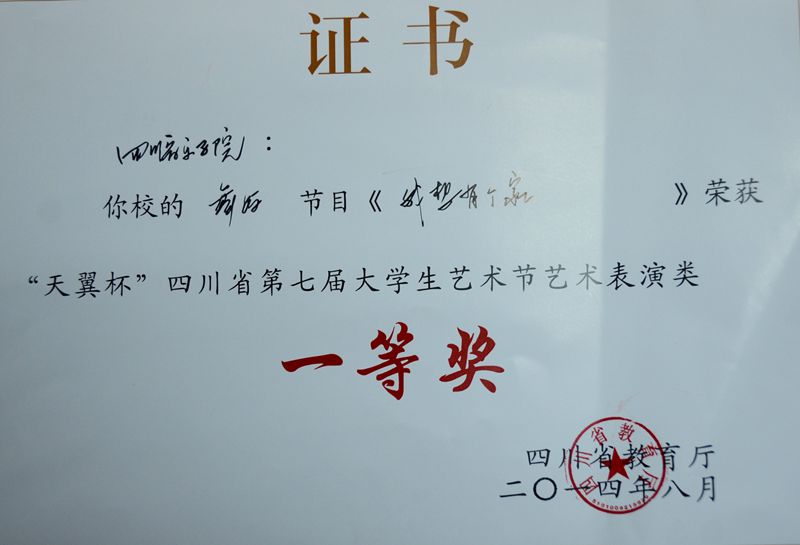 证书
四川音乐学院：
你校的 舞蹈 节目《我想有个家》荣获
“天翼杯”四川省第七届大学生艺术节艺术表演类
一等奖
四川省教育厅
二〇一四年八月
四川省教育厅